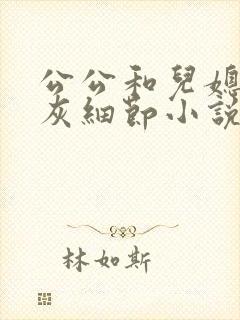 公公和兒媳
灰細節小說
林如斯